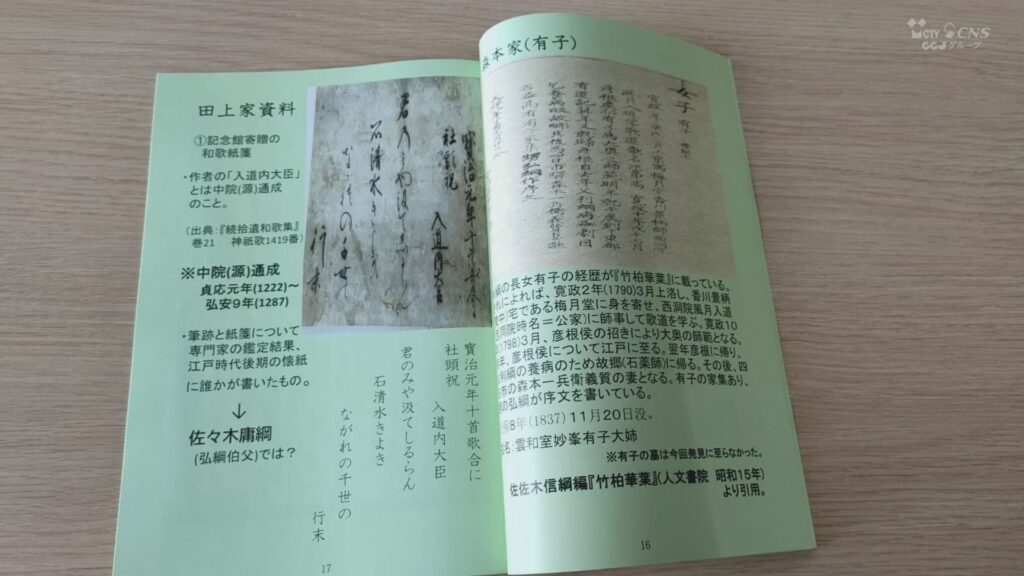 CTY CNS
CGJグループ
森本家(有子)
女子
の長女有子の経歴が『竹柏華葉』に載っている。
れによれば、寛政2年(1790)3月上洛し、香川景柄
中)宅である梅月堂に身を寄せ、西洞院風月入道
洞院時名＝公家)に師事して歌道を学ぶ。寛政10
798)3月、彦根侯の招きにより大奥の師範となる。
年、彦根侯について江戸に至る。翌年彦根に帰り、
綱の養病のため故郷(石薬師)に帰る。その後、四
市の森本一兵衛義質の妻となる。有子の家集あり、
の弘綱が序文を書いている。
保8年(1837)11月20日没。
名:雲和室妙峯有子大姉
※有子の墓は今回発見に至らなかった。
佐佐木信綱編『竹柏華葉』(人文書院 昭和15年)
より引用。
16
田上家資料
①記念館寄贈の
和歌紙箋
・作者の「入道内大臣」
とは中院(源)通成
のこと。
(出典:『続拾遺和歌集』
巻21 神祇歌1419番)
※中院(源)通成
貞応元年(1222)～
弘安9年(1287)
・筆跡と紙箋について
専門家の鑑定結果、
江戸時代後期の懐紙
に誰かが書いたもの。
↓
佐々木庸綱
(弘綱伯父)では?
寶治元年十首歌合に
社頭祝 入道内大臣
君のみや汲てしるらん
石清水きよき
ながれの千世の
行末
17